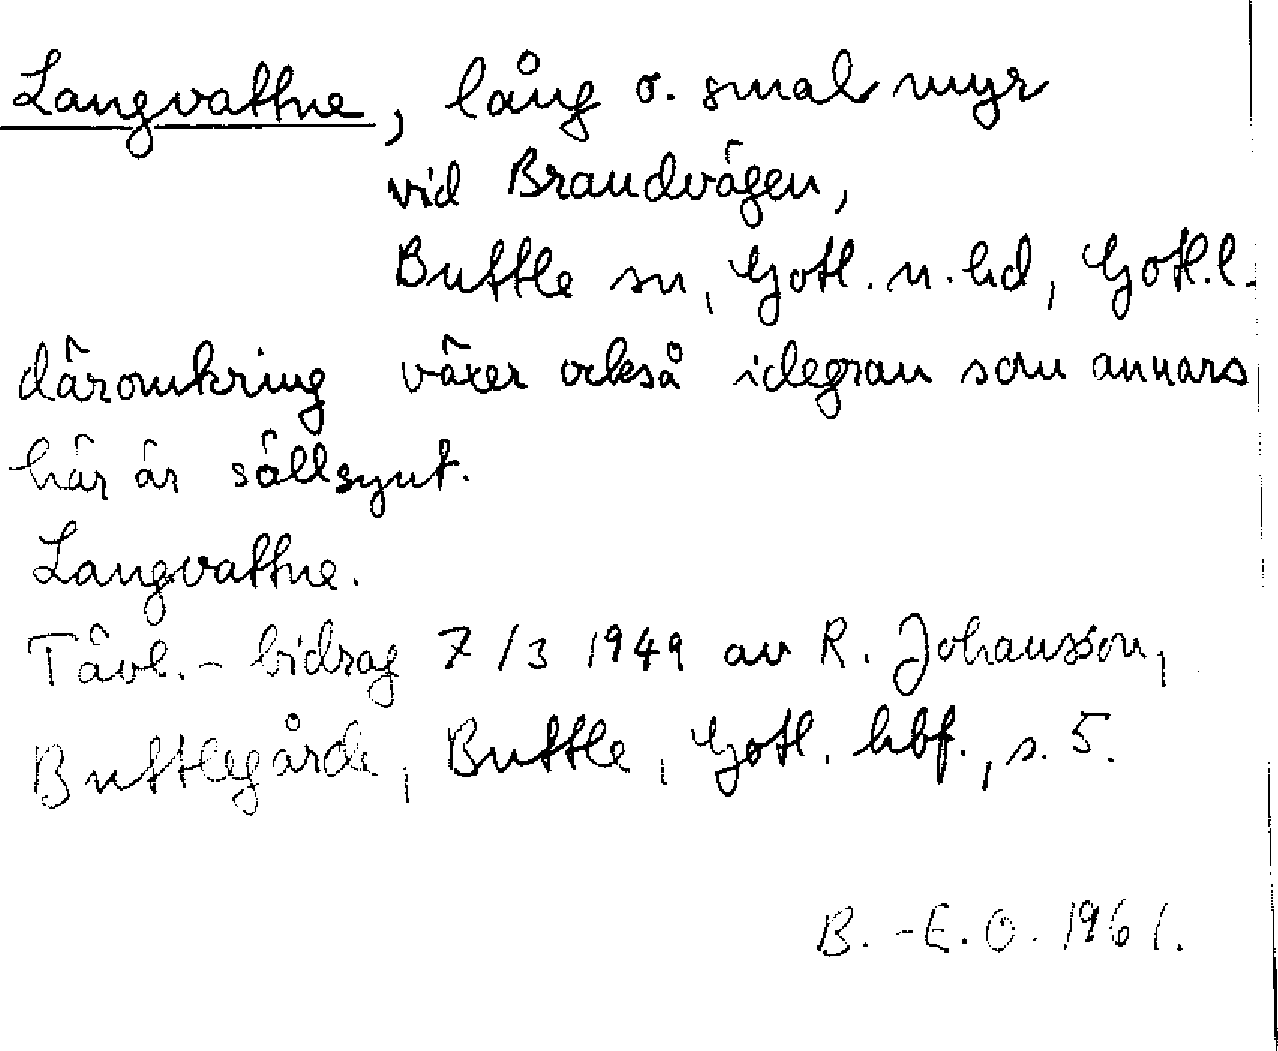 Langvattne, lång o. smal myr
vid Brandvägen,
Buttle sn, Gotl. n. hd, Gotl. l.
däromkring växer också idegran som annars
här är sällsynt.
Langvattne.
Tävl.-bidrag 7/3 1949 av R. Johansson,
Buttlegårde, Buttle, Gotl. hbf., s. 5.
B.-E. O. 1961.